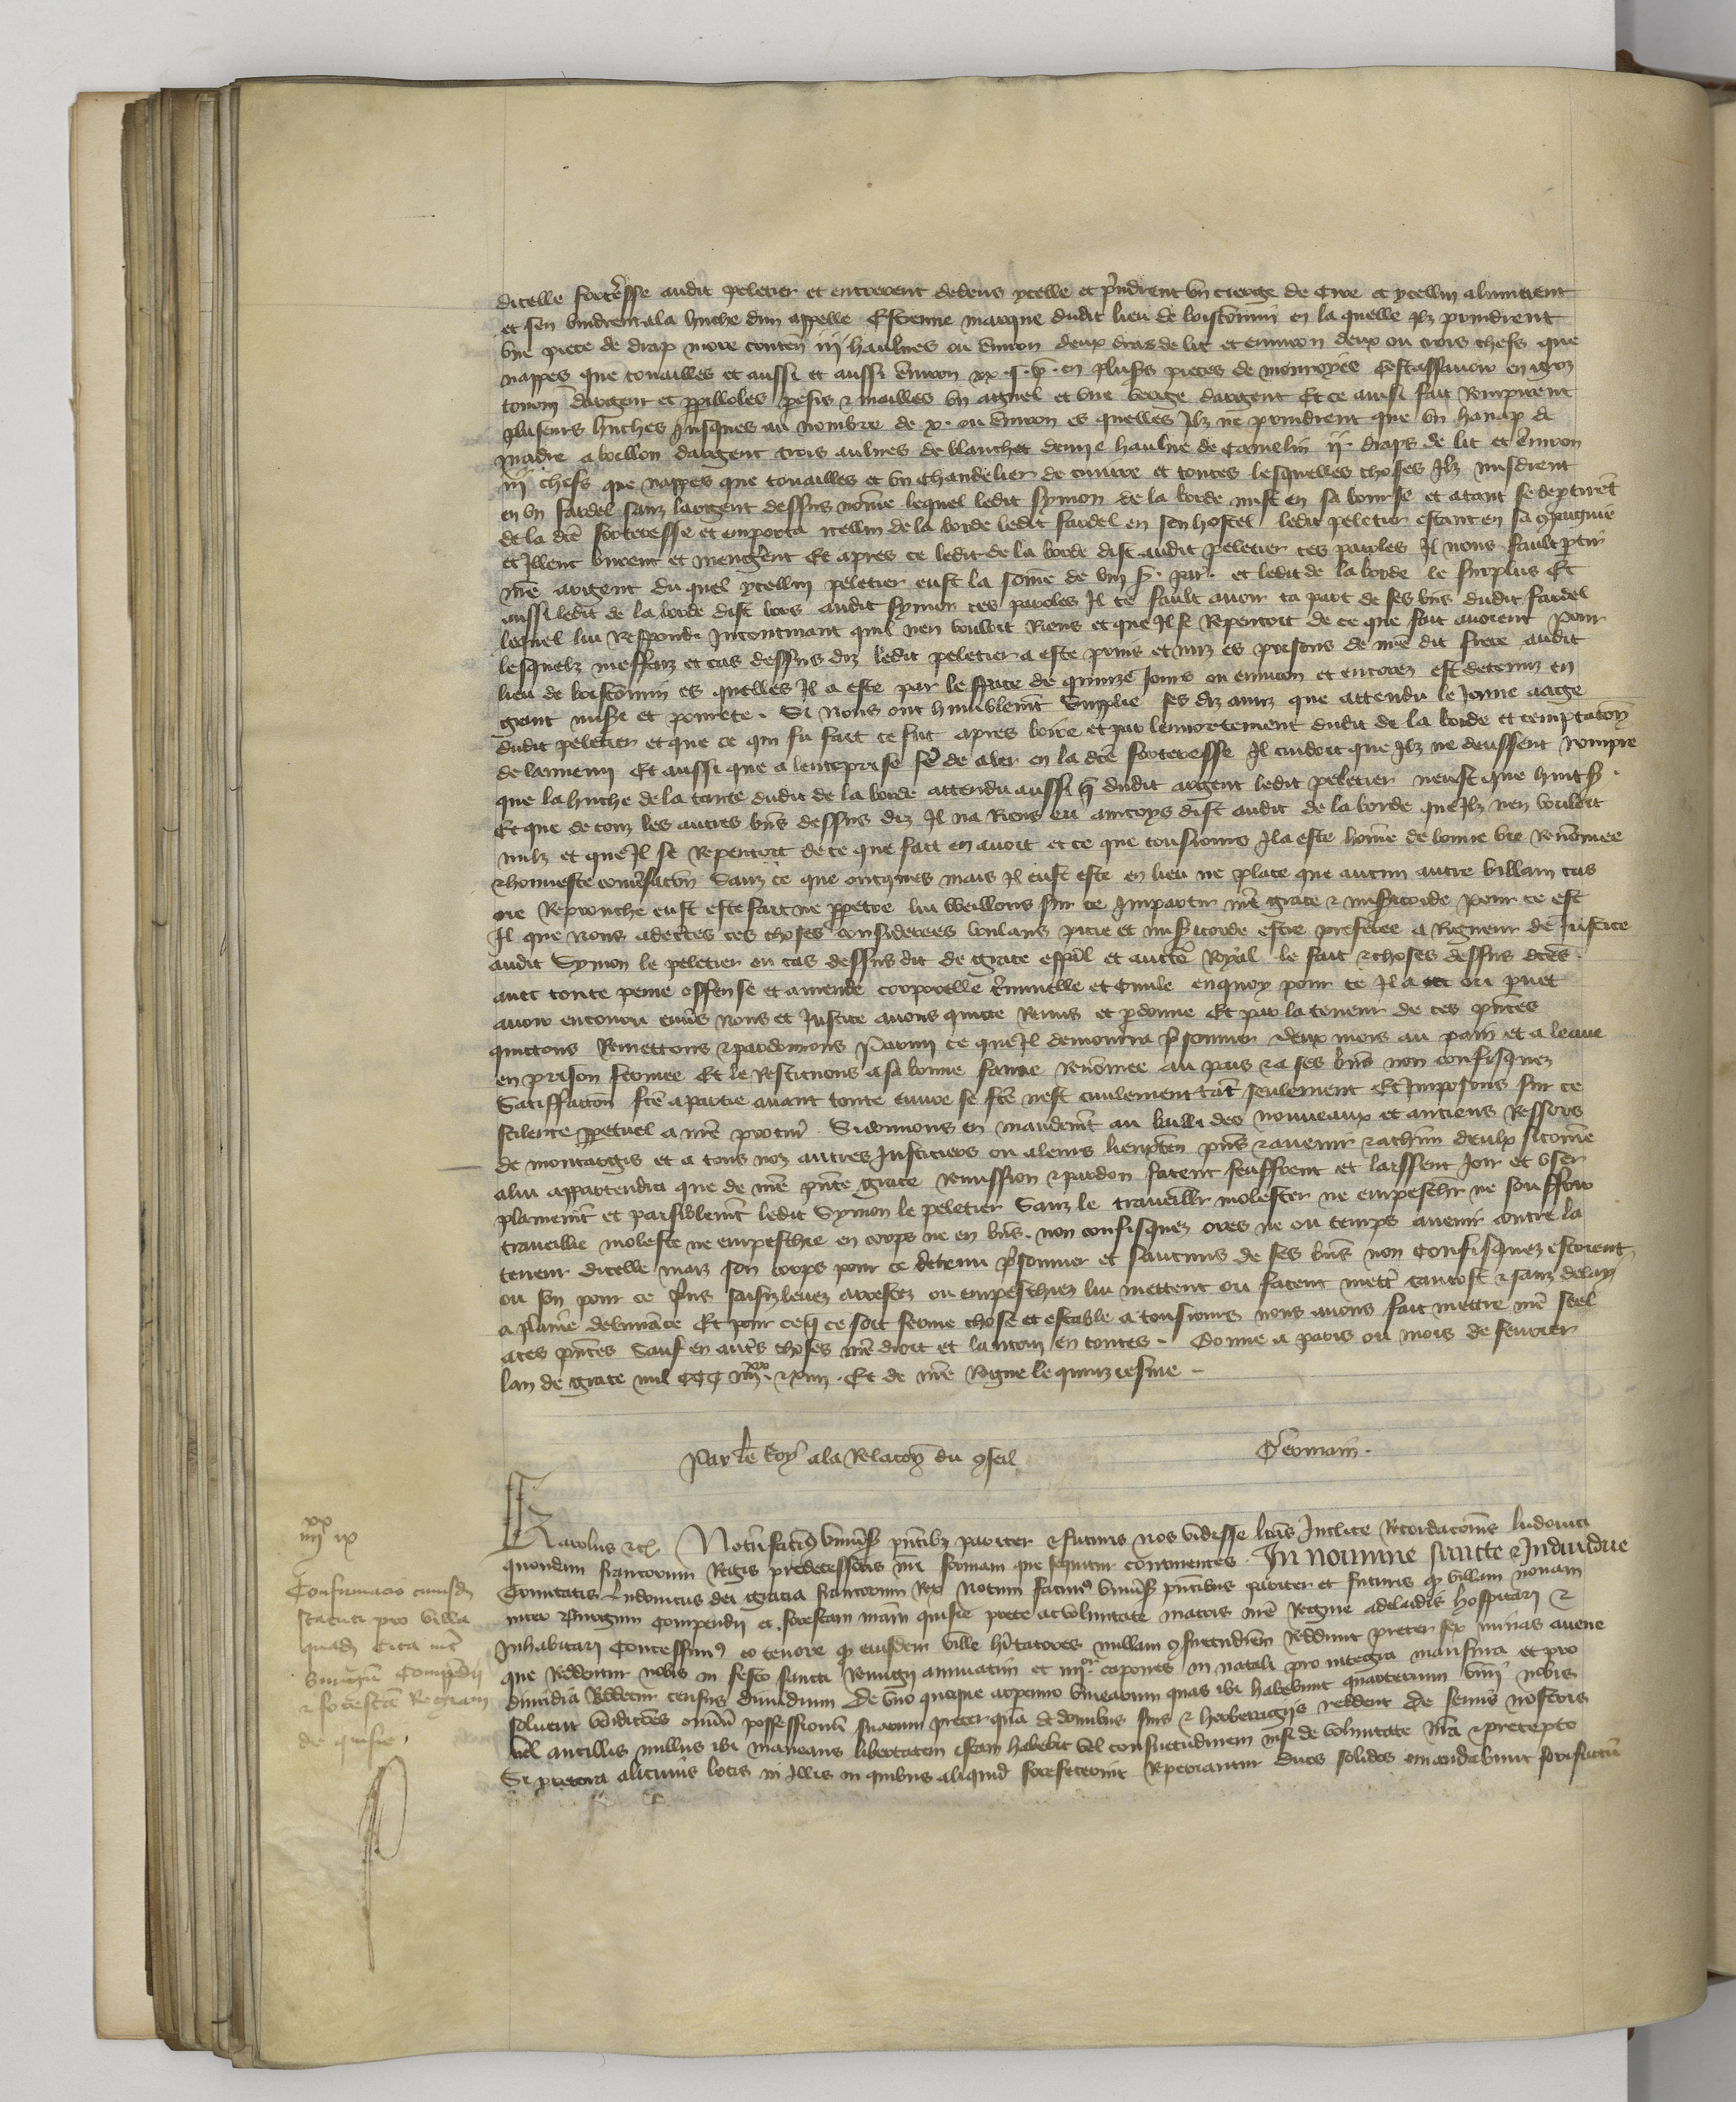 dicelle fort̾esse audit peletier et entrerent dedens ycelle et p̾ndrent vn cierge de Cire et ycellui alumerent
et sen vindrent ala huche dun appelle Estienne marque dudit lieu de boiscōmun en la quelle Ilz prindrent
vne piece de drap more conteñ iij haulnes ou enuiron deux dras de lit et enuiron deux ou trois chefs que
nappes que touailles et aussi et aussi enuiron xx s. p. en plus̾s pieces de monnoyes Cestassauoir en gros
tournois dargent et parpilloles pesis & mailles vn aignel et vne verge dargent Et ce ainsi fait Rompirent
pluseurs huches Jusques au nombre de x. ou enuiron es quelles Ilz ne prindrent que vn hanap de
madre a boillon dargent trois aulnes de blanchet demie haulne de Camelin ij draps de lit et enuiron
iij chefs que nappes que touailles et vn chandelier de cuiure et toutes lesquelles choses Ilz misdrent
en vn fardel sanz largent dessus nōme lequel ledit Symon de la borde mist en sa bourse et atant se deptirēt
de la dcē forteresse et emporta icellui de la borde ledit fardel en son hostel ledit peletier estant en sa 9paignie
et Illenc burent et mengerent Et apres ce ledit de la borde dist audit peletier ces paroles Il nous fault ptir
nrē argent du quel ycellui peletier eust la sōme de viij s. par. et ledit de la borde le surplus Et
aussi ledit de la borde dist lors audit Symon ces paroles Il te fault auoir ta part de ses biēs dudit fardel
lequel lui Respondi Incontinant quil nen vouloit Riens et que Il se Repentoit de ce que fait auoient Pour
lesquelz meffaiz et cas dessus diz ledit peletier a este prins et mis es prisons de nrē dit frere audit
lieu de boiscōmun es quelles Il a este par lespace de quinze Jours ou enuiron et encores est detenuz en
grant mis̾e et pourete. Si Nous ont humblemēt supplie ses diz amis que attendu le Jonne aage
dudit peletier et que ce qui fu fait ce fut apres boire et par lennortement dudit de la borde et temptacōn
de lennemy Et aussi que a lentreprise fcē de aler en la dcē forteresse Il cuidoit que Ilz ne deussent rompre
que la huche de la tante dudit de la borde attendu aussi q̄ dudit argent ledit peletier neust que huit s.
Et que de touz les autres biēs dessus diz Il na Riens eu aincoys dist audit de la borde que Ilz nen vouloit
nulz et que Il se Repentoit de ce que fait en auoit et ce que tousiours Il a este hōme de bonne vie Renōmee
& honneste conũsacōn Sanz ce que oncques mais Il eust este en lieu ne place que aucun autre villain cas
ne Reprouche eust este fait ne ppetre lui Vueillons sur ce Impartir nrē grace & mis̾icorde Pour ce est
Il que Nous adecertes ces choses considerees voulans pitie et mis̾icorde estre preferee a Rigueur de Justice
audit Symon le peletier ou cas dessus dit de grace esp̾al et auctō Royal le fait & choses dessus dcēs
auec toute peine offense et amende corporelle c̾minelle et Ciuile enquoy pour ce Il a ou puet
auoir encouru enũs Nous et Justice auons quicte Remis et pdonne Et par la teneur de ces p̾ntes
quictons Remettons & pardonnons Parmi ce que Il demourra p̾sonnier deux mois au pain et a leaue
en prison fermee Et le Restituons a sa bonne fame renōmee au pais & a ses biēs non confisquez
Satisfaccōn fcē a partie auant toute euure se fcē nest ciuilement tāt seulement Et Imposons sur ce
scilence ppetuel a nrē procur̾ Sidonnons en mandemēt au bailli des nouueaux et anciens Ressors
de montargis et a tous noz autres Justiciers ou a leurs lieuxten p̾ns & auenir & achūn deulx si cōme
a lui appartendra que de nrē p̾nte grace remission & pardon facent seuffrent et laissent Joir et vser
plainemēt et paisiblemēt ledit Symon le peletier Sanz le trauaillier molester ne empeschr̾ ne souffrir
trauaillie moleste ne empeschie en corps ne en biēs non confisquez ores ne ou temps auenir contre la
teneur dicelle mais son corps pour ce detenu p̾sonnier et saucuns de ses biēs non Confisquez estoient
ou son pour ce p̾ns saisiz leuez arrestez ou empeschiez lui mettent ou facent mett̾ tantost & sanz delay
a plaine deliurāce Et pour ce q̄ ce soit ferme chose et estable a tousiours nous auons fait mettre nrē seel
a ces p̾ntes Sauf en autr̾s choses nrē droit et lautrui en toutes. Donne a paris ou mois de feurier
lan de grace mil CCC iiij xx. & xiiij. Et de nrē Regne le quinziesme

Par le Roy a la Relacōn du 9seil
Germain.

xx
iiij ix
Confirmacio cuiusd̄
statuti pro villa
quad̄ sita int̾
burgū Compēdij
& forestā Regiam
de quisie

Karolus &c̄ Notū facim9 Vniũs̾ p̾ntib3 pariter & futuris nos vidisse lrās Inclite Recordacōnis ludouici
quondam francorum Regis predecessoris nrī formam que sequitur continentes. In nomine sancte & Indiuidue
Trinitatis Ludouicus dei gracia francorum Rex Notum facim9 Vniũs̾ p̾ntibus pariter et futuris q̄ villam nouam
inter burgum Compendij et forestam nrām quisie prece ac voluntate matris nrē Regine adelaidis hospitari &
Inhabitari Concessim9 eo tenore q̄ eiusdem ville hītatores nullam 9suetudinem Reddunt preter sex minas auene
que Reddentur nobis in festo sancti Remigij annuatim et iiijor capones in natali pro integra mansura et pro
dimidia Reddetur census dimidium De vno quoque arpenno vinearum quas ibi habebunt quarterium vini nobis
soluent vendicōnes omniū possessionū suarum preter quā de domibus suis & herbergagiis reddent De seruis nostris
vel ancillis nullus ibi manens libertatem istam habebit vel consuetudinem nisi de voluntate nrā & precepto
Si alicuius locis in illis in quibus aliquid forefecerint Reperiantur duos solidos emandabunt forifactū